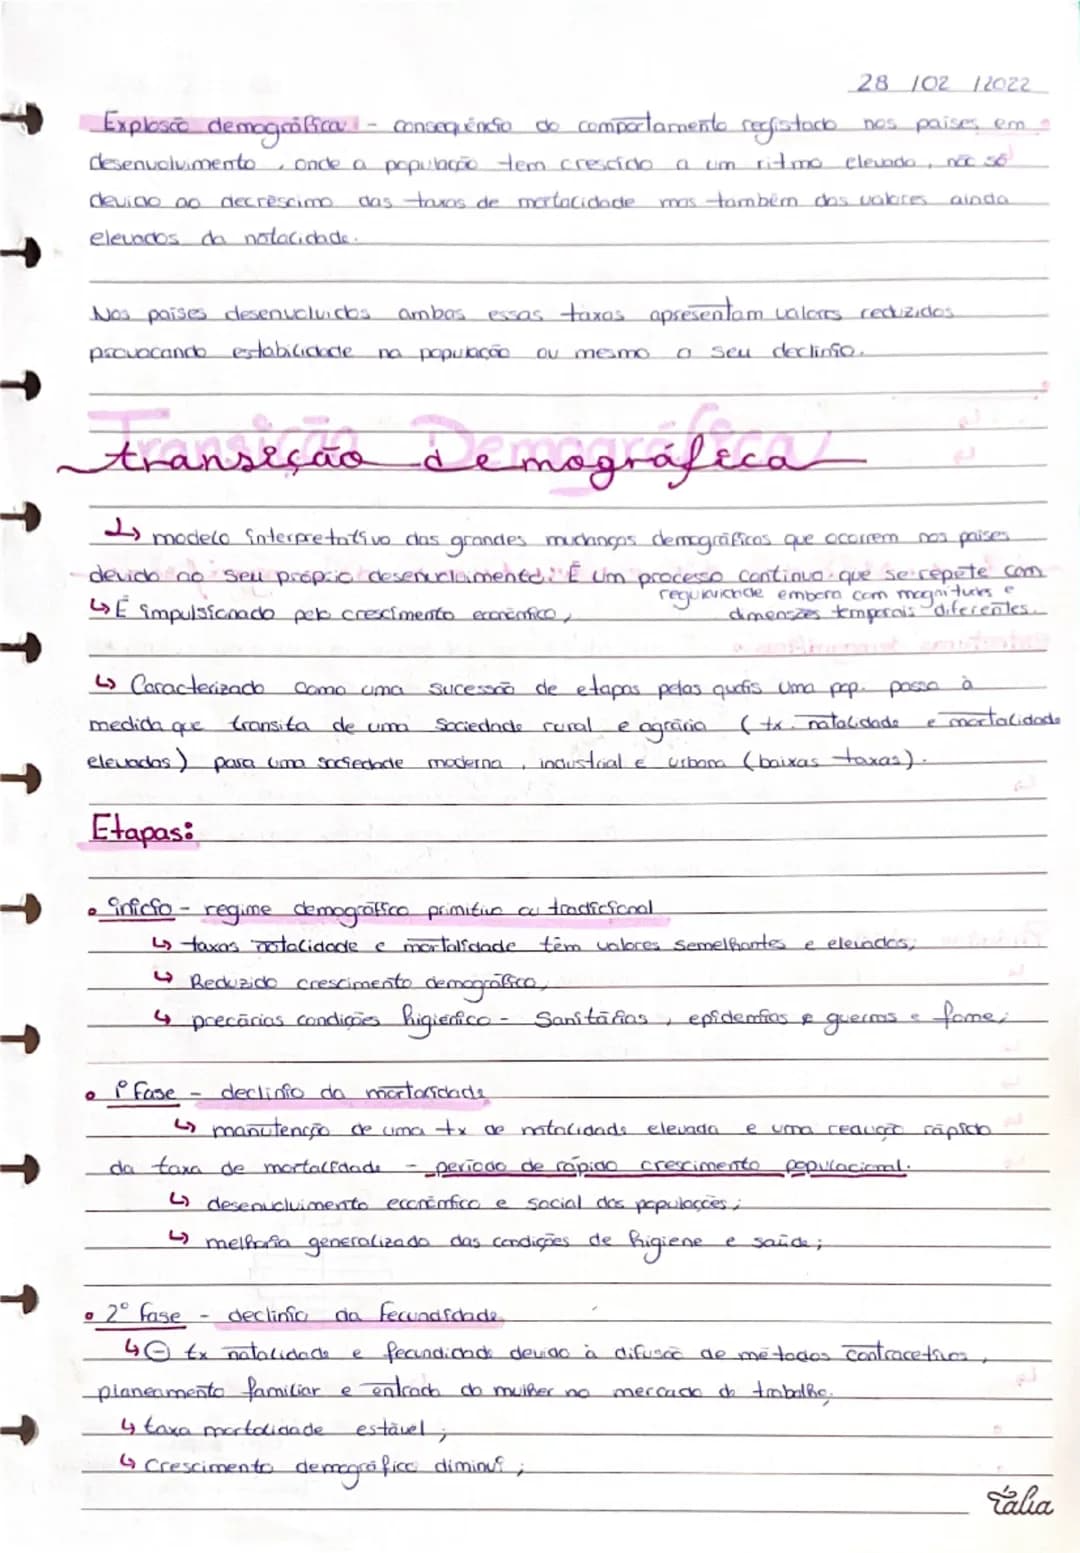 28 /02 /2022
Explosão demográfica - consequência do comportamento registado nos países em
desenvolvimento, onde a população tem crescido a um ritmo elevado, não só
devido ao decréscimo das taxas de mortalidade mas também dos valores ainda
elevados da natalidade.
Nos países desenvolvidos ambas essas taxas apresentam valores reduzidos
provocando estabilidade na população ou mesmo o seu declínio.
Transição Demográfica
transição demográfica
↳ modelo interpretativo das grandes mudanças demográficas que ocorrem nos países
devido ao seu próprio desenvolvimento. É um processo contínuo que se repete com
regularidade embora com magnitudes e
↳ É impulsionado pelo crescimento económico, dimensões temporais diferentes.
↳ Caracterizado como uma sucessão de etapas pelas quais uma pop. passa à
medida que transita de uma sociedade rural e agrária (tx. natalidade e mortalidade
elevadas) para uma sociedade moderna, industrial e urbana (baixas taxas).
Etapas:
• início - regime demográfico primitivo ou tradicional
↳ taxas natalidade e mortalidade têm valores semelhantes e elevados;
↳ Reduzido crescimento demográfico,
↳ precárias condições higiénico - Sanitárias, epidemias e guerras e fome;
• 1ª Fase - declínio da mortalidade
↳ manutenção de uma tx de natalidade elevada e uma redução rápida
da taxa de mortalidade - período de rápido crescimento populacional.
↳ desenvolvimento económico e social das populações;
↳ melhoria generalizada das condições de higiene e saúde;
• 2º fase - declínio da fecundidade
↳ ⊖ tx natalidade e fecundidade devido à difusão de métodos contracetivos,
planeamento familiar e entrada da mulher no mercado do trabalho.
↳ taxa mortalidade estável;
↳ Crescimento demográfico diminui;
Tália